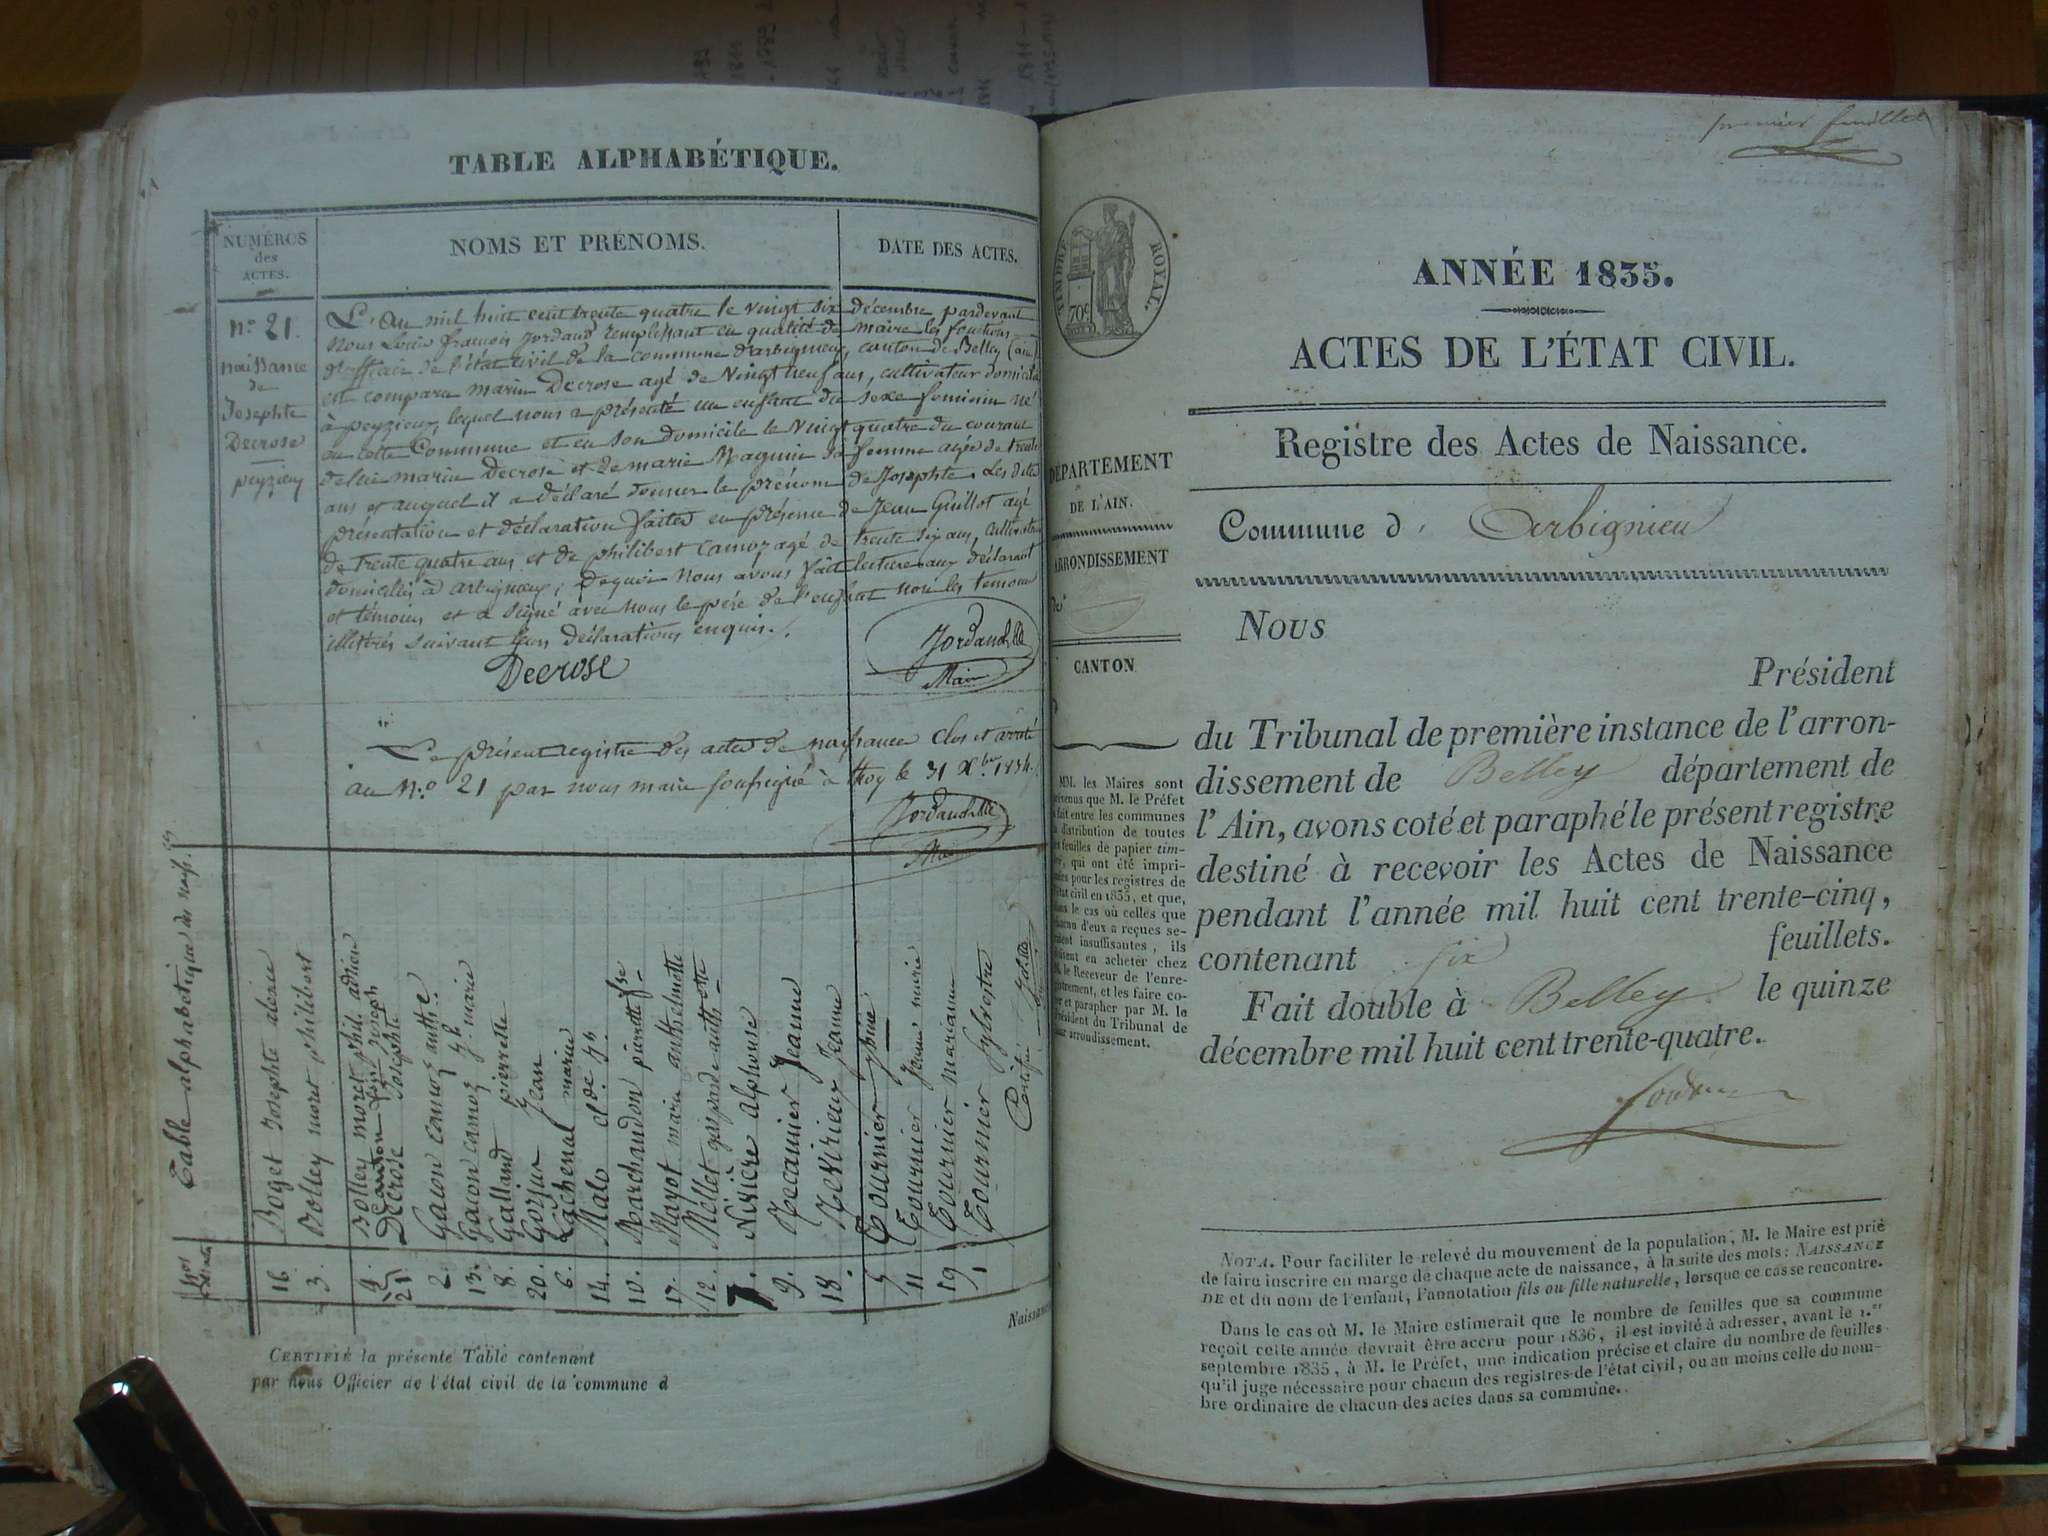 TABLE ALPHABÉTIQUE.
NUMÉROS
des
ACTES.
NOMS ET PRÉNOMS.
DATE DES ACTES.
n.º 21.
naissance
de
Josephte
Decrose
peyzieu
L'an mil huit cent trente quatre le vingt six décembre pardevant
nous Louis françois Jordand remplissant en qualité de maire les fonctions
d'officier de l'état civil de la commune d'arbignieu, canton de Belley (ain)
est comparu marin Decrose agé de vingt neuf ans, cultivateur domicilié
à peyzieux, lequel nous a présenté un enfant du sexe feminin né
en cette Commune et en son domicile le vingt quatre du courant
de lui marin Decrose et de marie Magnin sa femme agée de trente
ans et auquel il a déclaré donner le prénom de Josephte. Les dites
présentation et déclaration faites en présence de Jean Guillot agé
de trente quatre ans et de philibert Camoz agé de trente six ans, cultivateurs
domiciliés à arbignieux; Dequoi nous avons fait lecture aux déclarant
et témoins et a signé avec nous le père de l'enfant non les temoins
illitérés suivant leurs déclarations enquis.
Decrose
Maire
Le présent registre des actes de naissance clos et arrêté
au N.º 21 par nous maire soussigné à thoy le 31 Xbre 1834.
Maire
Table alphabétique des naiss.
16. Roget Josephte alexie
3. Bolley moret philibert
4. Bolley moret phil. adrien
21. Decrose Josephte
2. Gacon camoz anth.e
13. Gacon camoz j. marie
8. Galland pierrette
20. Gojus Jean
6. Lachenal marie
14. Malo cl.de
10. Marchandon pierrette fse
17. Mayot marie anthelmette
12. Mellet gaspard
7. Nivière alphonse
9. Recamier Jeanne
18. Revirieux Jeanne
5 Tournier
11 Tournier Jeanne marie
19 Tournier marianne
1 Tournier Sylvestre
Certifié
Naissance
CERTIFIÉ la présente Table contenant
par nous Officier de l'état civil de la commune d
premier feuillet
TIMBRE ROYAL.
70c
DÉPARTEMENT
DE L'AIN.
ARRONDISSEMENT
CANTON
MM. les Maires sont
prévenus que M. le Préfet
a fait entre les communes
la distribution de toutes
les feuilles de papier tim-
bré, qui ont été impri-
mées pour les registres de
l'état civil en 1835, et que,
dans le cas où celles que
chacun d'eux a reçues se-
raient insuffisantes, ils
doivent en acheter chez
M. le Receveur de l'enre-
gistrement, et les faire co-
ter et parapher par M. le
Président du Tribunal de
leur arrondissement.
ANNÉE 1835.
ACTES DE L'ÉTAT CIVIL.
Registre des Actes de Naissance.
Commune d' Arbignieu
Nous
Président
du Tribunal de première instance de l'arron-
dissement de Belley département de
l'Ain, avons coté et paraphé le présent registre
destiné à recevoir les Actes de Naissance
pendant l'année mil huit cent trente-cinq,
contenant six feuillets.
Fait double à Belley le quinze
décembre mil huit cent trente-quatre.
NOTA. Pour faciliter le relevé du mouvement de la population, M. le Maire est prié
de faire inscrire en marge de chaque acte de naissance, à la suite des mots: NAISSANCE
DE et du nom de l'enfant, l'annotation fils ou fille naturelle, lorsque ce cas se rencontre.
Dans le cas où M. le Maire estimerait que le nombre de feuilles que sa commune
reçoit cette année devrait être accru pour 1836, il est invité à adresser, avant le 1.er
septembre 1835, à M. le Préfet, une indication précise et claire du nombre de feuilles
qu'il juge nécessaire pour chacun des registres de l'état civil, ou au moins celle du nom-
bre ordinaire de chacun des actes dans sa commune.